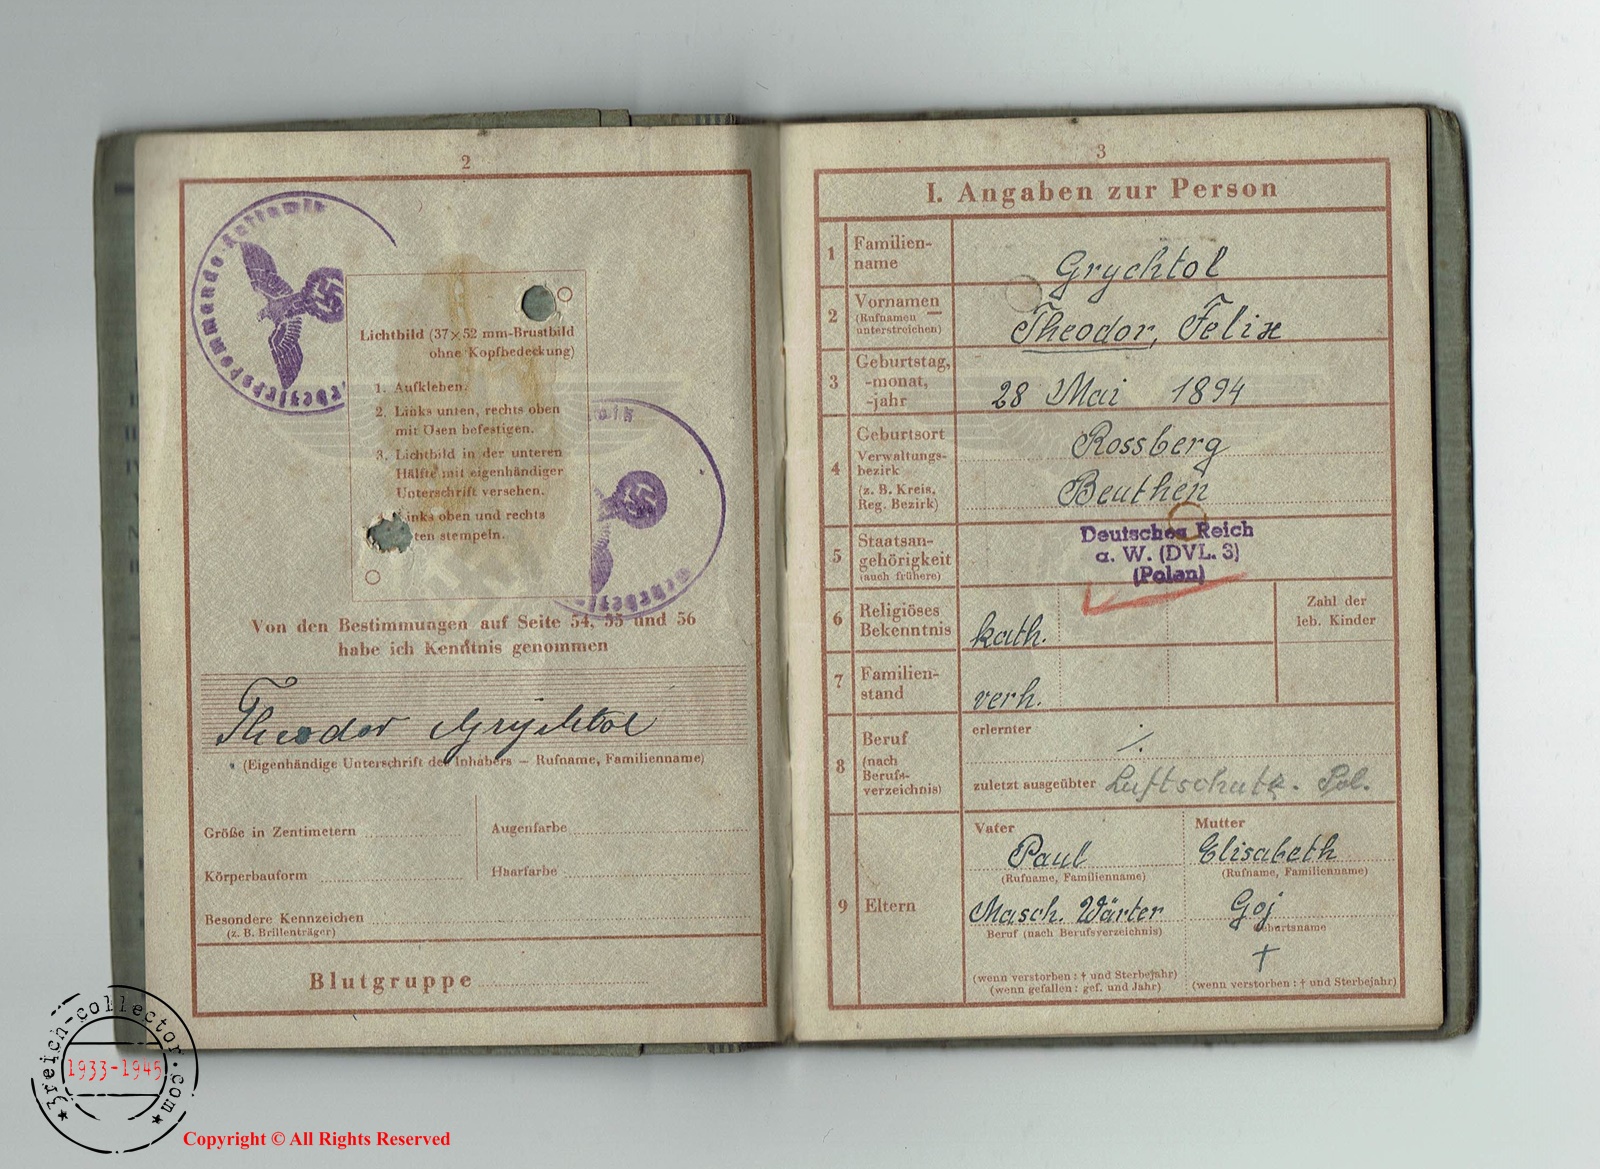 2
Lichtbild (37×52 mm-Brustbild
ohne Kopfbedeckung)
1. Aufkleben.
2. Links unten, rechts oben
mit Ösen befestigen.
3. Lichtbild in der unteren
Hälfte mit eigenhändiger
Unterschrift versehen.
inks oben und rechts
ten stempeln.
Von den Bestimmungen auf Seite 54, 55 und 56
habe ich Kenntnis genommen
Theodor Grychtol
(Eigenhändige Unterschrift des Inhabers – Rufname, Familienname)
Größe in Zentimetern
Augenfarbe
Körperbauform
Haarfarbe
Besondere Kennzeichen
(z. B. Brillenträger)
Blutgruppe
3
I. Angaben zur Person
1 Familien-
name
Grychtol
2 Vornamen
(Rufnamen
unterstreichen)
Theodor, Felix
3 Geburtstag,
-monat,
-jahr
28 Mai 1894
4 Geburtsort
Verwaltungs-
bezirk
(z. B. Kreis,
Reg. Bezirk)
Rossberg
Beuthen
5 Staatsan-
gehörigkeit
(auch frühere)
Deutsches Reich
a. W. (DVL. 3)
(Polan)
6 Religiöses
Bekenntnis
kath.
Zahl der
leb. Kinder
7 Familien-
stand
verh.
8 Beruf
(nach
Berufs-
verzeichnis)
erlernter
./.
zuletzt ausgeübter Luftschutz. Pol.
9 Eltern
Vater
Paul
(Rufname, Familienname)
Masch. Wärter
Beruf (nach Berufsverzeichnis)
(wenn verstorben: † und Sterbejahr)
(wenn gefallen: gef. und Jahr)
Mutter
Elisabeth
(Rufname, Familienname)
Goj
Geburtsname
†
(wenn verstorben: † und Sterbejahr)
3reich-collector.com
1933-1945
Copyright © All Rights Reserved